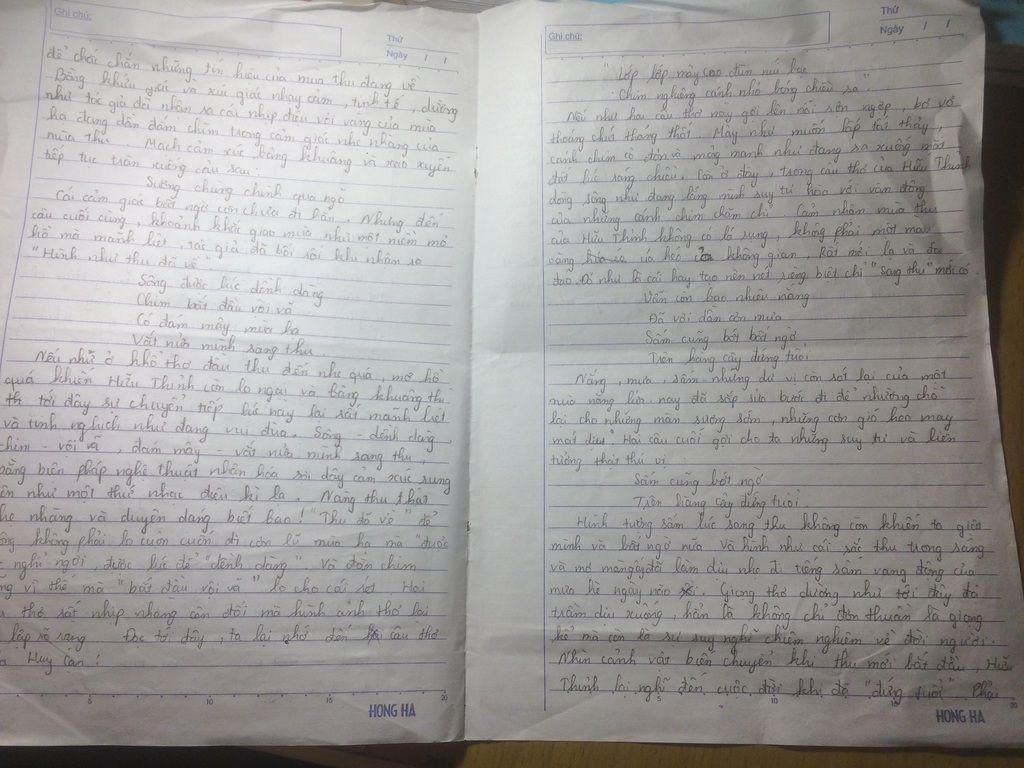 Ghi chú:
Thứ
Ngày / /
để chắc chắn những tín hiệu của mùa thu đang về
Bằng khứu giác và xúc giác nhạy cảm, tinh tế, dường
như tác giả đã nhận ra cái nhịp điệu vội vàng của mùa
hạ đang dần đắm chìm trong cảm giác nhẹ nhàng của
mùa thu. Mạch cảm xúc bâng khuâng và xao xuyến
tiếp tục tràn xuống câu sau.
Sương chùng chình qua ngõ
Cái cảm giác bất ngờ còn chưa đi hẳn. Nhưng đến
câu cuối cùng, khoảnh khắc giao mùa như một niềm mơ
hồ mà mãnh liệt, tác giả đã bồi hồi khi nhận ra
"Hình như thu đã về"
Sông được lúc dềnh dàng
Chim bắt đầu vội vã
Có đám mây mùa hạ
Vắt nửa mình sang thu
Nếu như ở khổ thơ đầu thu đến nhẹ quá, mơ hồ
quá khiến Hữu Thỉnh còn lo ngại và bâng khuâng thì
tới đây sự chuyển tiếp lúc này lại rất mãnh liệt
và tinh nghịch như đang vui đùa. Sông - dềnh dàng,
chim - vội vã, đám mây - vắt nửa mình sang thu,
bằng biện pháp nghệ thuật nhân hóa sợi dây cảm xúc rung
lên như một thứ nhạc điệu kì lạ. Nàng thu thật
nhẹ nhàng và duyên dáng biết bao! "Thu đã về" để
sông không phải lo cuồn cuộn đi cơn lũ mùa hạ mà "được
nghỉ ngơi, được lúc để "dềnh dàng". Và đàn chim
vì thế mà "bắt đầu vội vã" lo cho cái rét. Hai
thơ rất nhịp nhàng cân đối mà hình ảnh thơ lại
lập rõ ràng. Đọc tới đây, ta lại nhớ đến câu thơ
Huy Cận:
5 10 15 20
HONG HA
Ghi chú:
Thứ
Ngày / /
"Lớp lớp mây cao đùn núi bạc
Chim nghiêng cánh nhỏ bóng chiều sa"
Nếu như hai câu thơ này gợi lên nỗi rợn ngợp, bơ vơ
thoáng chút thảng thốt. Mây như muốn lấp tất thảy,
cánh chim cô đơn và mỏng manh như đang sa xuống mặt
đất lúc sang chiều. Còn ở đây, trong câu thơ của Hữu Thỉnh
dòng sông như đang lắng mình suy tư hòa với vận động
của những cánh chim chăm chỉ. Cảm nhận mùa thu
của Hữu Thỉnh không có lá rụng, không phải một màu
vàng úa héo của không gian. Rất mới lạ và độc
đáo. Đó như là cái hay tạo nên nét riêng biệt chỉ "Sang thu" mới có
Vẫn còn bao nhiêu nắng
Đã vơi dần cơn mưa
Sấm cũng bớt bất ngờ
Trên hàng cây đứng tuổi
Nắng, mưa, sấm những dư vị còn sót lại của một
mùa nắng lửa nay đã sắp sửa bước đi để nhường chỗ
lại cho những màn sương sớm, những cơn gió heo may
mát dịu. Hai câu cuối gợi cho ta những suy tư và liên
tưởng thật thú vị.
Sấm cũng bớt ngờ
Trên hàng cây đứng tuổi
Hình tượng sấm lúc sang thu không còn khiến ta giật
mình và bất ngờ nữa. Và hình như cái sắc thu trong sáng
và mơ màng đã làm dịu nhẹ đi tiếng sấm vang động của
mùa hè ngày nào. Giọng thơ dường như tới đây đã
trầm dịu xuống, hẳn là không chỉ đơn thuần là giọng
kể mà còn là sự suy nghĩ chiêm nghiệm về đời người.
Nhìn cảnh vật biến chuyển khi thu mới bắt đầu, Hữu
Thỉnh lại nghĩ đến cuộc đời khi đã "đứng tuổi". Phải
5 10 15 20
HONG HA